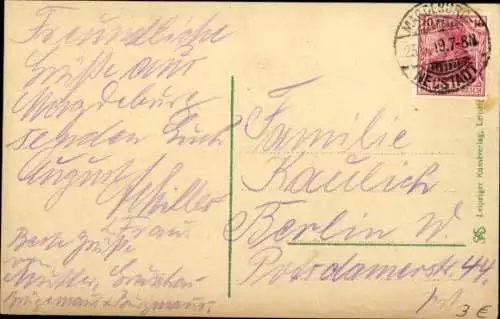 Freundliche
Grüße aus
Magdeburg
senden Euch
August Schiller
u. Frau.
Beste Grüße
Mutter,
Familie
Kaulich
Berlin W.
Potsdamerstr. 44.
MAGDEBURG
19.7-8N
NEUSTADT
Leipziger Kunstverlag, Leipzig
3 €